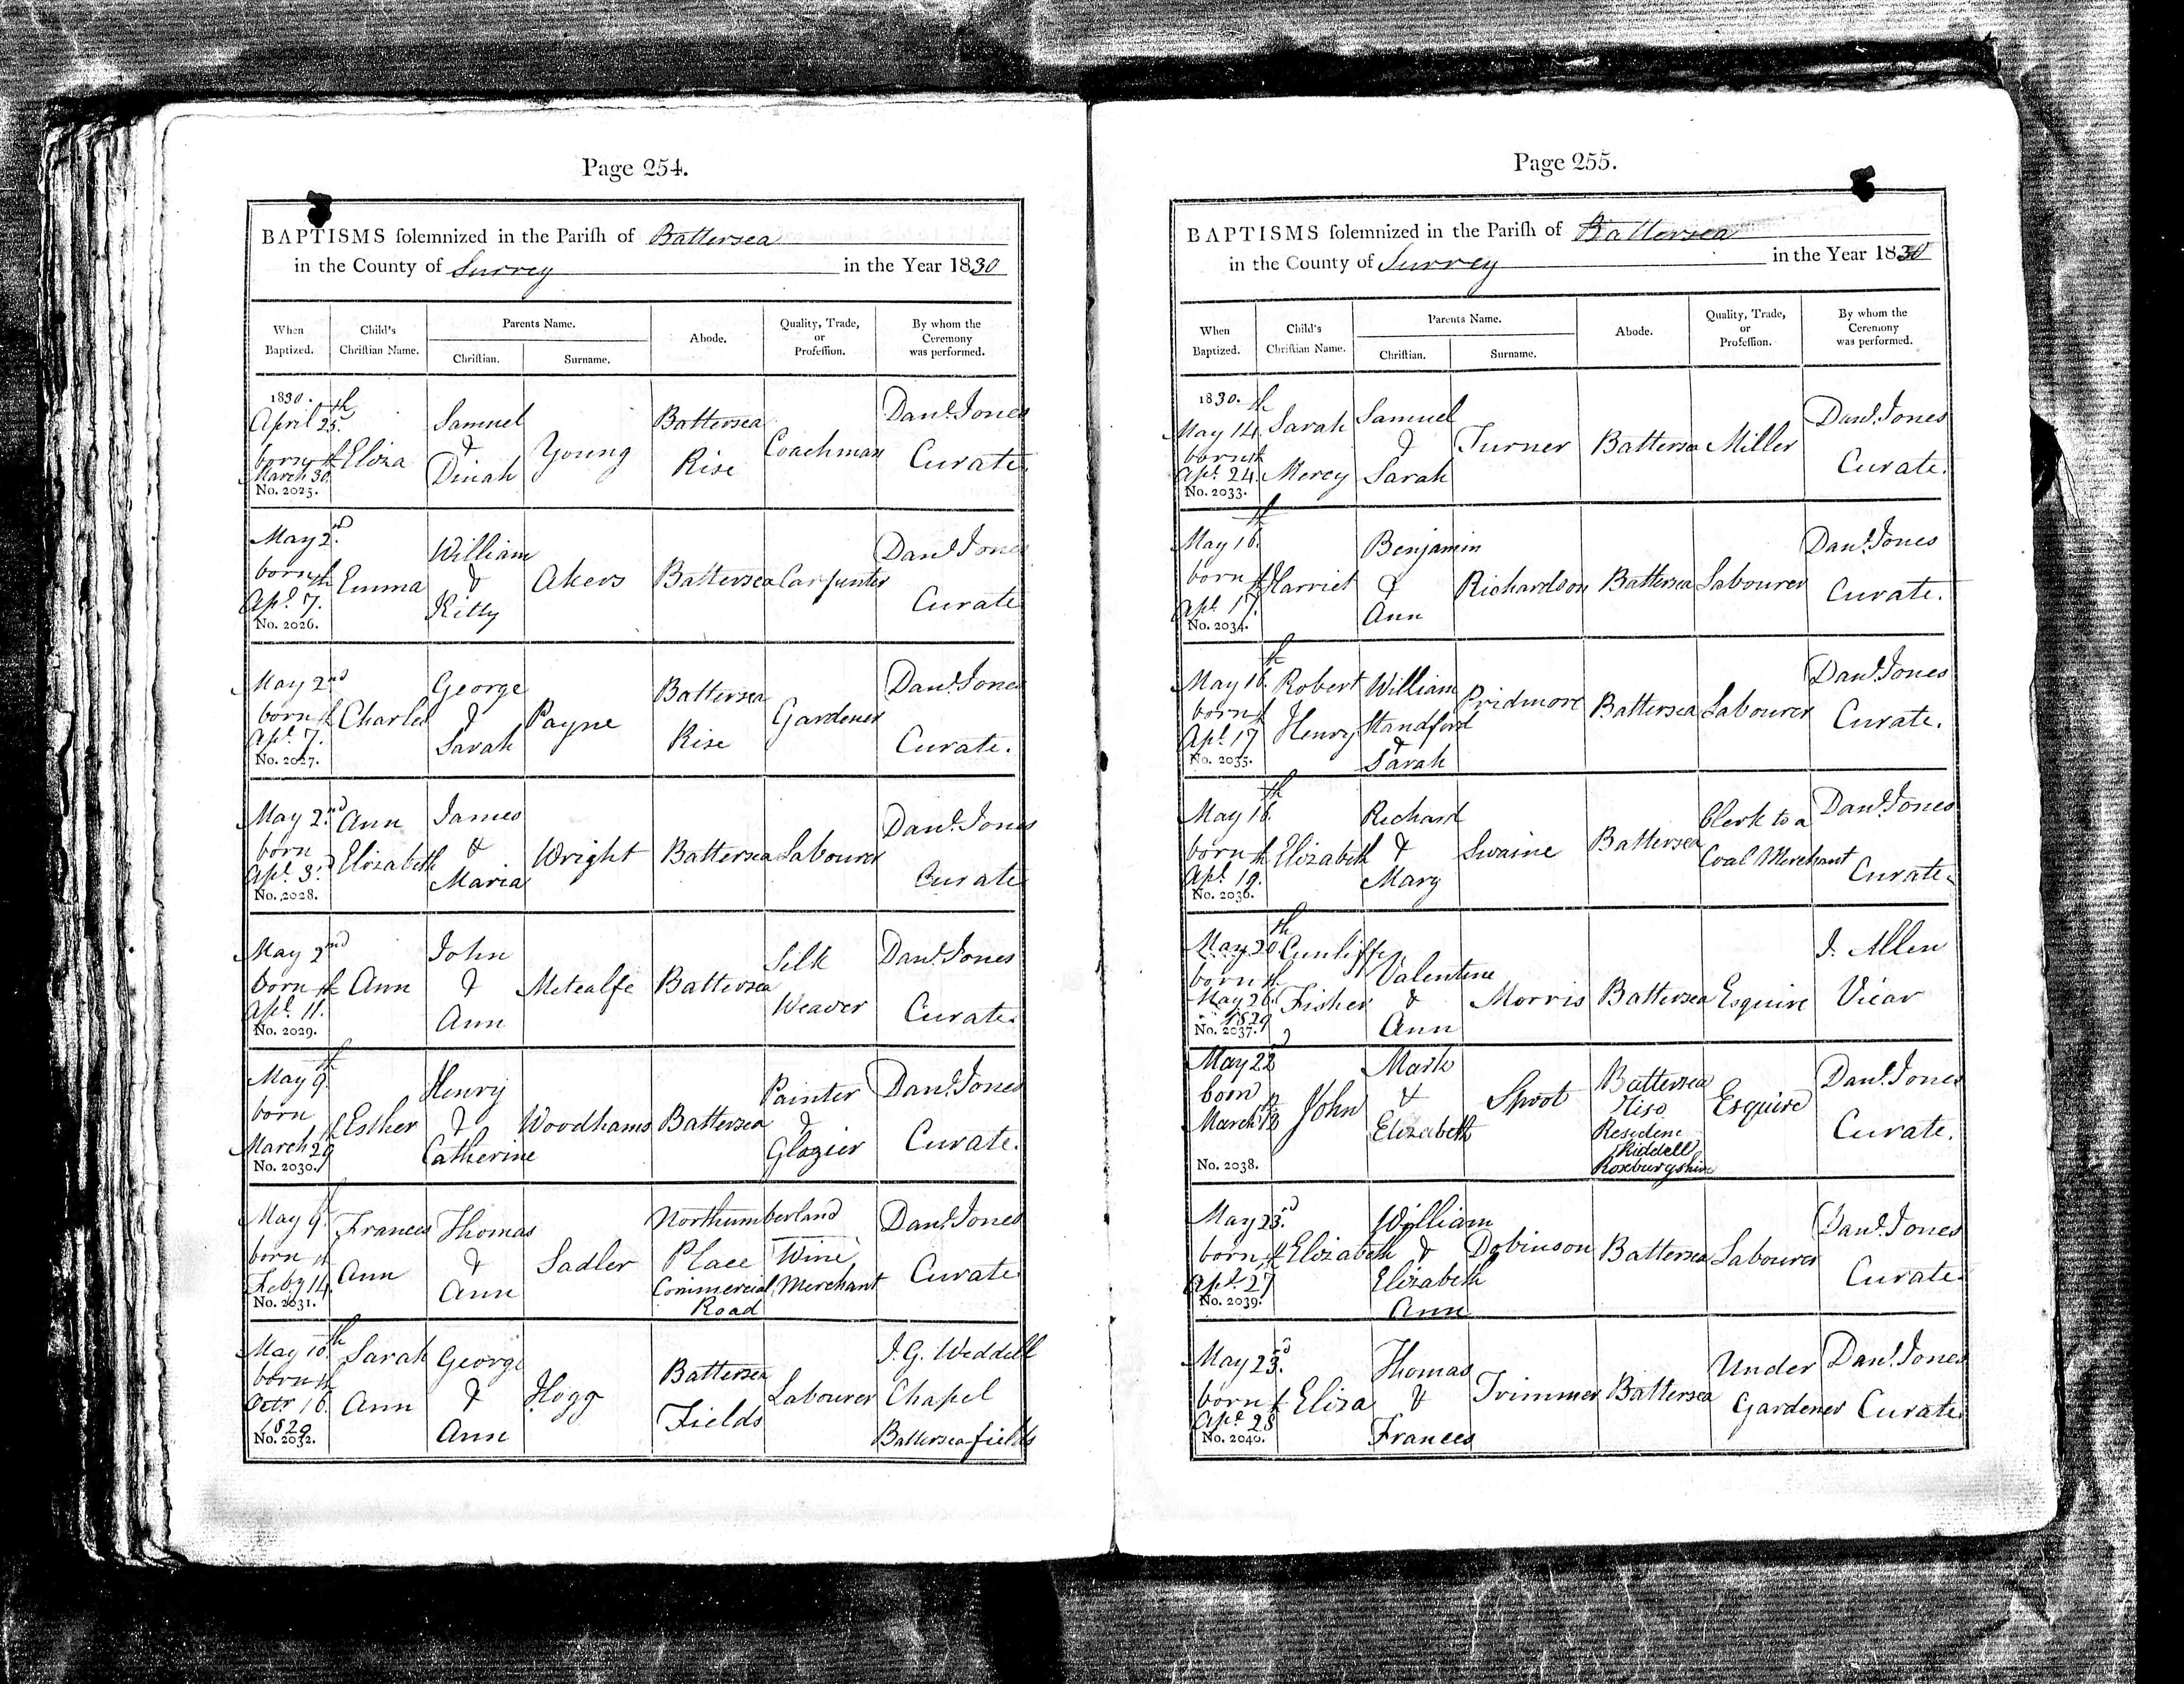 Page 254.
BAPTISMS solemnized in the Parish of Battersea
in the County of Surrey in the Year 1830
When Baptized. Child's Christian Name. Parents Name. Christian. Surname. Abode. Quality, Trade, or Profession. By whom the Ceremony was performed.
1830.
April 25th born March 30th Eliza Samuel & Dinah Young Battersea Rise Coachman Danl. Jones Curate.
No. 2025.
May 2nd born Apl. 7th Emma William & Kitty Akers Battersea Carpenter Danl. Jones Curate
No. 2026.
May 2nd born Apl. 7th Charles George & Sarah Payne Battersea Rise Gardener Danl. Jones Curate.
No. 2027.
May 2nd born Apl. 3d Ann Elizabeth James & Maria Wright Battersea Labourer Danl. Jones Curate
No. 2028.
May 2nd born Apl. 11th Ann John & Ann Metcalfe Battersea Silk Weaver Danl. Jones Curate.
No. 2029.
May 9th born March 29th Esther Henry & Catherine Woodhams Battersea Painter & Glazier Danl. Jones Curate.
No. 2030.
May 9th born Feby 14th Frances Ann Thomas & Ann Sadler Northumberland Place Commercial Road Wine Merchant Danl. Jones Curate
No. 2031.
May 10th born Octr 16th 1829 Sarah Ann George & Ann Hogg Battersea Fields Labourer J. G. Weddell Chapel Battersea fields
No. 2032.
Page 255.
BAPTISMS solemnized in the Parish of Battersea
in the County of Surrey in the Year 1830
When Baptized. Child's Christian Name. Parents Name. Christian. Surname. Abode. Quality, Trade, or Profession. By whom the Ceremony was performed.
1830.
May 14th born Apl. 24th Sarah Mercy Samuel & Sarah Turner Battersea Miller Danl. Jones Curate.
No. 2033.
May 16th born Apl. 17th Harriet Benjamin & Ann Richardson Battersea Labourer Danl. Jones Curate.
No. 2034.
May 16th born Apl. 17th Robert Henry William Standford & Sarah Pridmore Battersea Labourer Danl. Jones Curate.
No. 2035.
May 16th born Apl. 19th Elizabeth Richard & Mary Swaine Battersea Clerk to a Coal Merchant Danl. Jones Curate.
No. 2036.
May 20th born May 26th 1829 Cunliffe Fisher Valentine & Ann Morris Battersea Esquire J. Allen Vicar
No. 2037.
May 22d born March 12th John Mark & Elizabeth Sprot Battersea Rise Residence Riddell Roxburgshire Esquire Danl. Jones Curate.
No. 2038.
May 23d born Apl. 27th Elizabeth William & Elizabeth Ann Dobinson Battersea Labourer Danl. Jones Curate.
No. 2039.
May 23d born Apl. 28th Eliza Thomas & Frances Trimmer Battersea Under Gardener Danl. Jones Curate.
No. 2040.